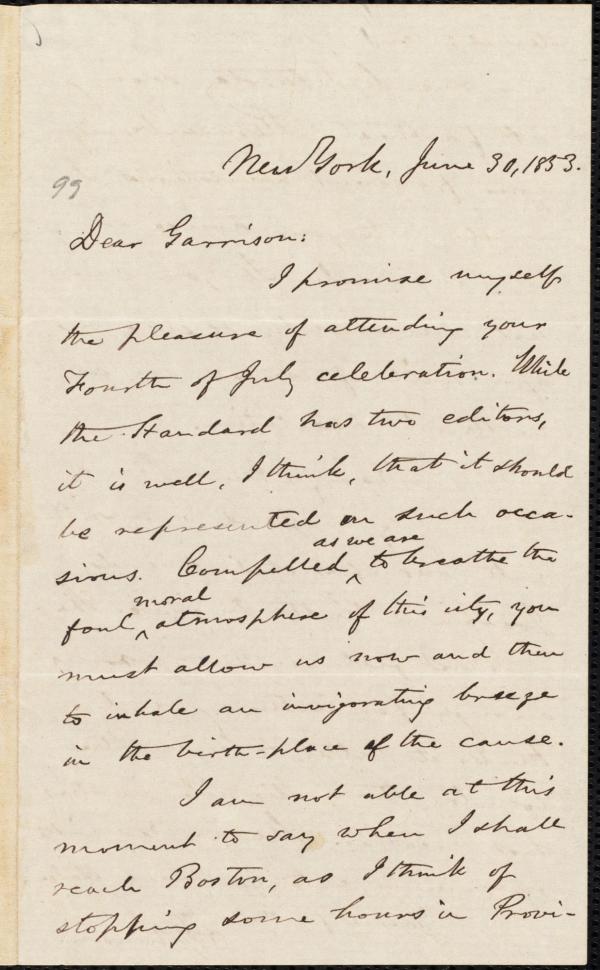 New York, June 30, 1853.
99
Dear Garrison:
I promise myself
the pleasure of attending your
Fourth of July celebration. While
the Standard has two editors,
it is well, I think, that it should
be represented on such occa-
sions. Compelled, as we are to breathe the
foul moral atmosphere of this city, you
must allow us now and then
to inhale an invigorating breeze
in the birth-place of the cause.
I am not able at this
moment to say when I shall
reach Boston, as I think of
stopping some hours in Provi-